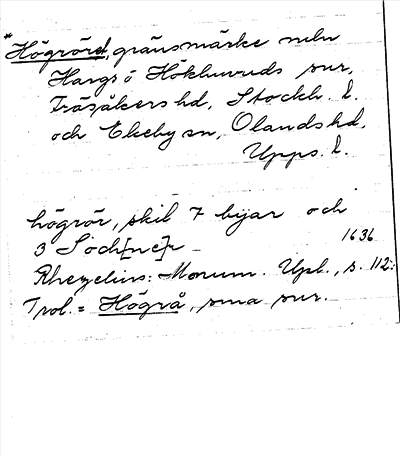 * Högröret, gränsmärke mellan
Hargs o Hökhuvuds snr,
Frösåkers hd, Stockh. l.
och Ekeby sn, Olands hd,
Upps. l.
högrör, skil 7 bÿar och
3 Soch[ne]r
1636
Rhezelius: Monum. Upl., s. 112.
Trol. = Högrå, sma snr.